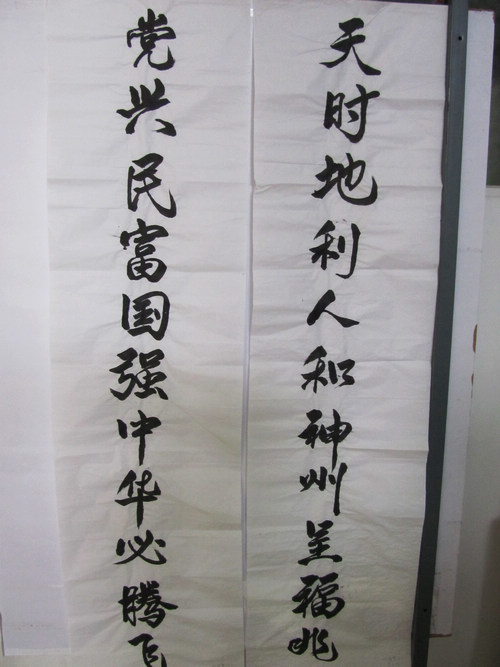 天时地利人和神州呈福兆
党兴民富国强中华必腾飞